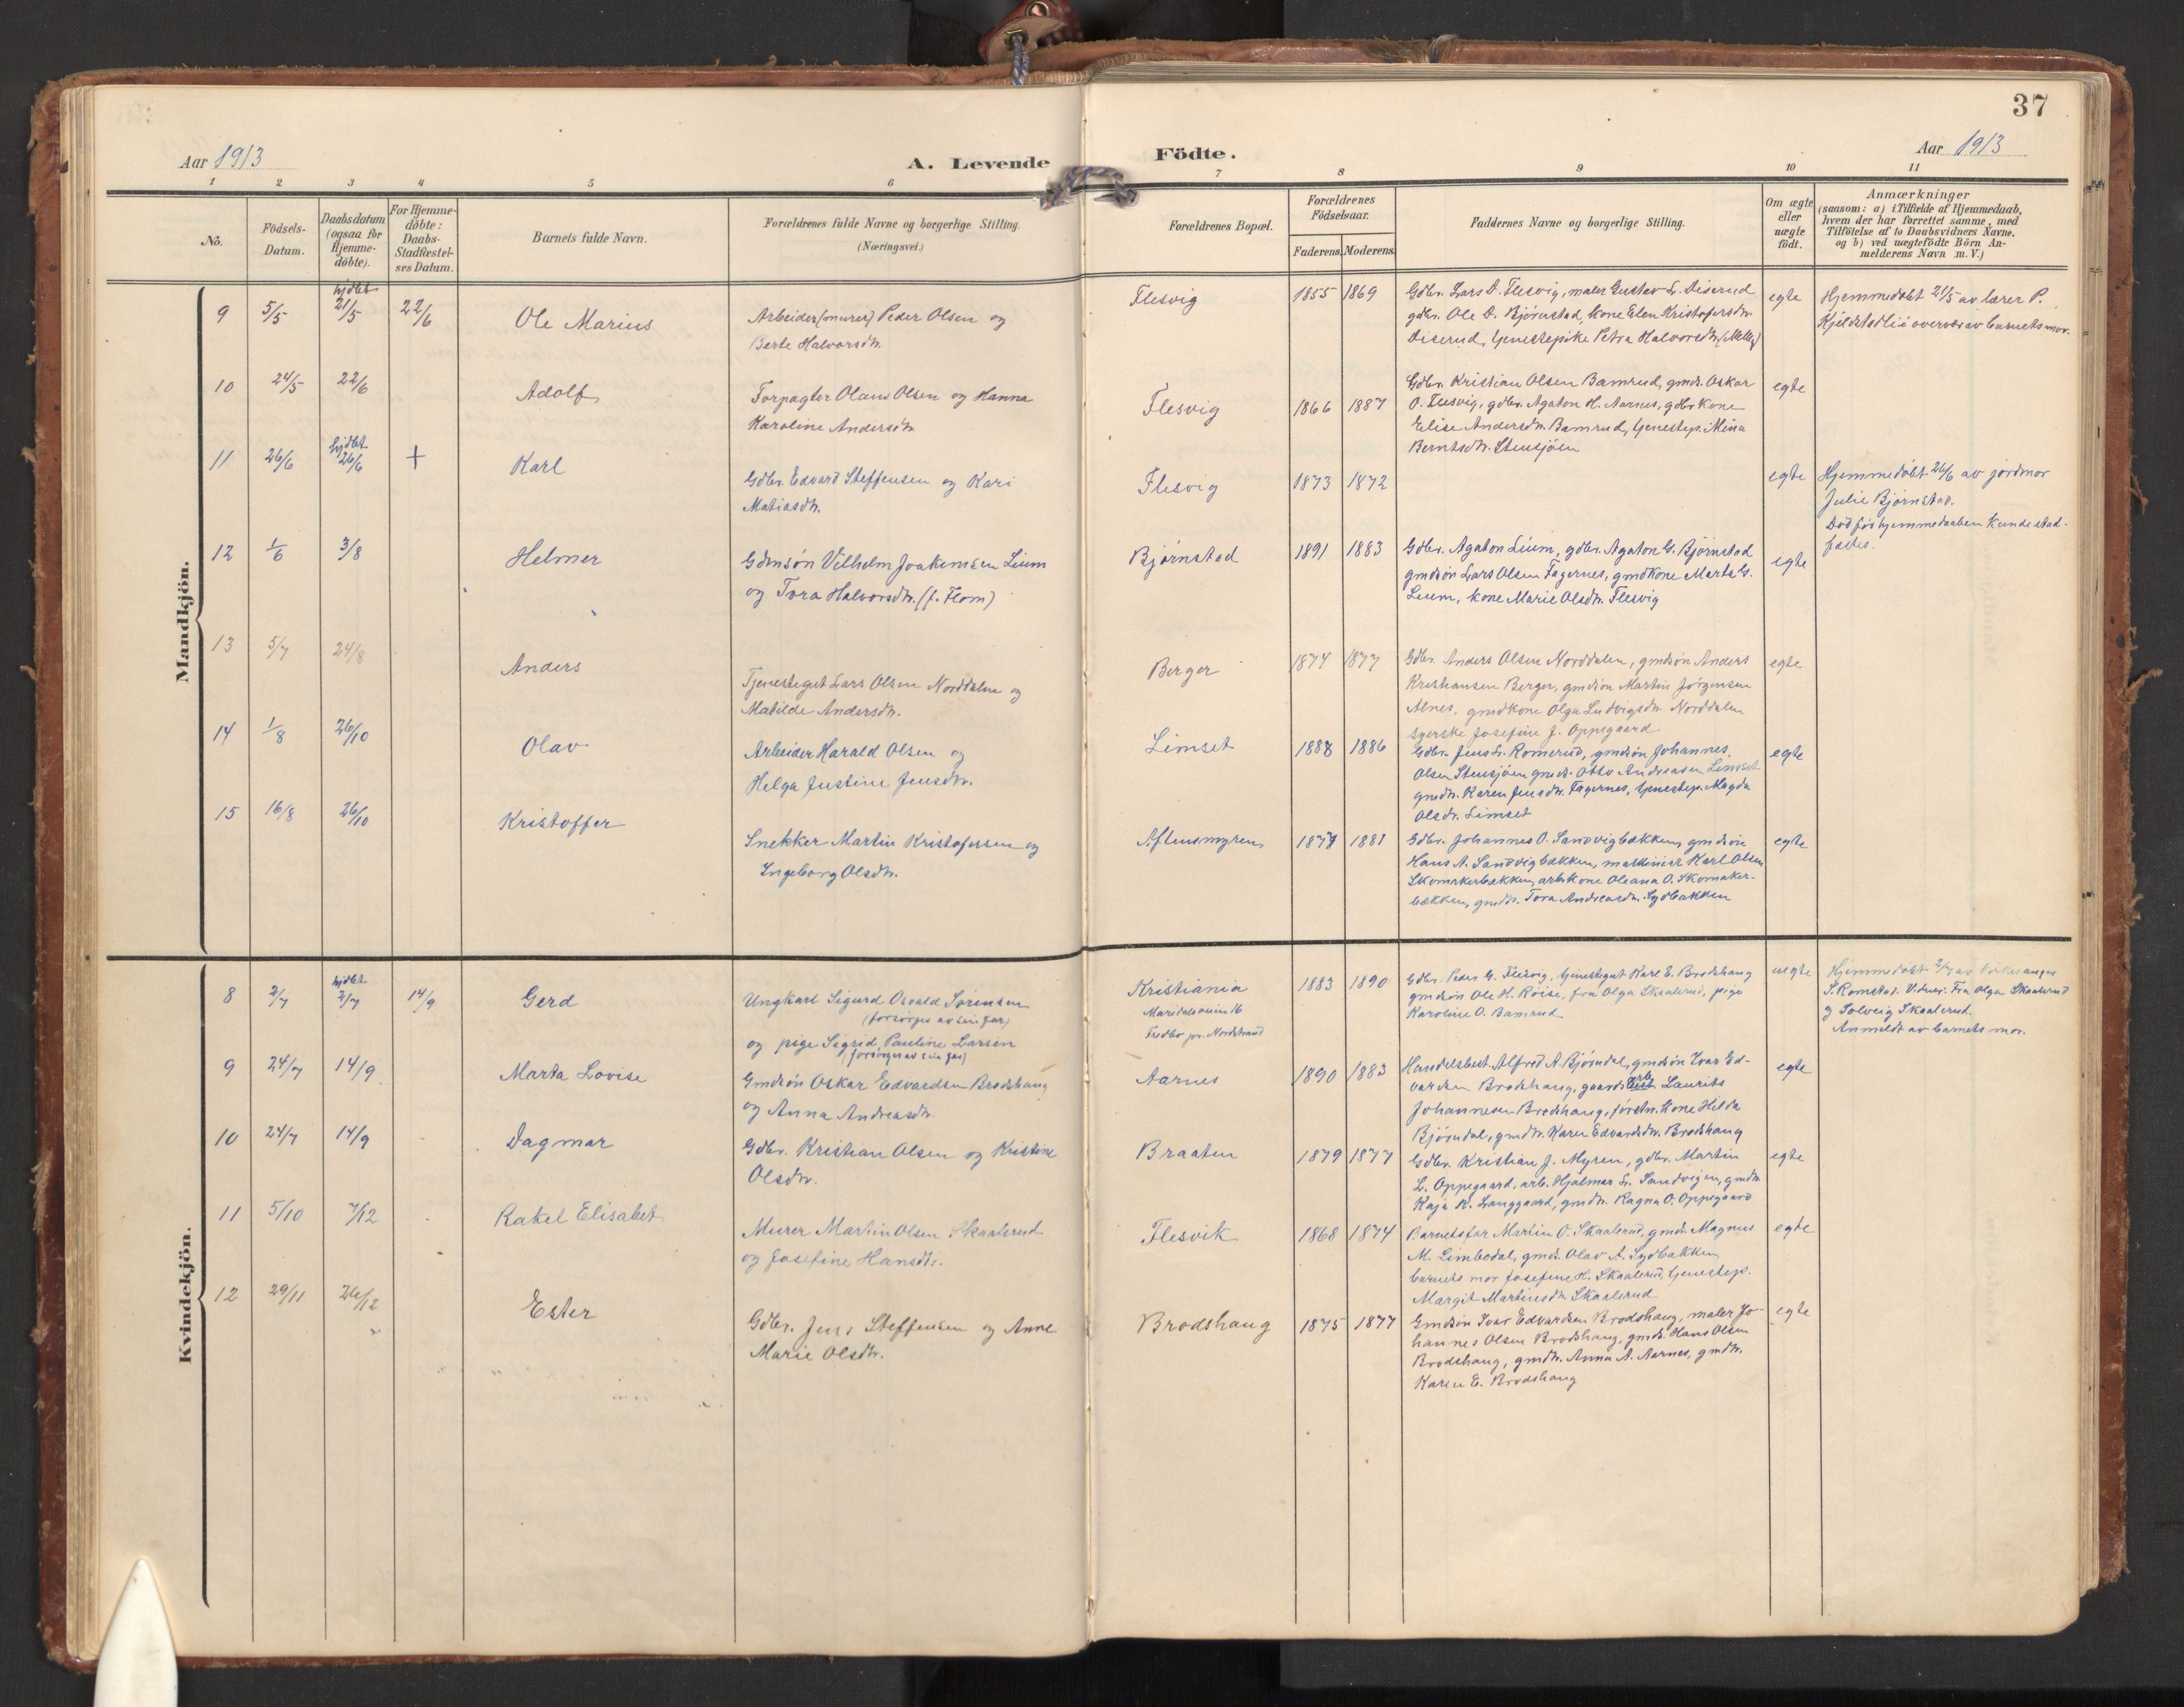 37
Aar 1913
A. Levende
Födte.
Aar 1913
1 2 3 4 5 6 7 8 9 10 11
No.
Födsels-
Datum.
Daabsdatum
(ogsaa for
Hjemme-
döbte).
For Hjemme-
döbte:
Daabs-
Stadfæstel-
ses Datum.
Barnets fulde Navn.
Forældrenes fulde Navne og borgerlige Stilling.
(Næringsvei.)
Forældrenes Bopæl.
Forældrenes
Födselsaar.
Faderens. Moderens.
Faddernes Navne og borgerlige Stilling.
Om ægte
eller
uægte
födt.
Anmærkninger
(saasom: a) i Tilfælde af Hjemmedaab,
hvem der har forrettet samme, med
Tilföielse af to Daabsvidners Navne,
og b) ved uægtefödte Börn An-
melderens Navn m. V.)
Mandkjön.
9 5/5 hjdbt 21/5 22/6 Ole Marius
Arbeider (murer) Peder Olsen og
Berte Halvorsdtr.
Flesvig 1855 1869
Gdbr. Lars D. Flesvig, maler Gustav L. Diserud
gdbr. Ole D. Bjørnstad, kone Elen Kristofersdtr.
Diserud, tjenestepike Petra Halvorsdtr.
egte
Hjemmedøbt 21/5 av lærer P.
Kjeldstadli i overvær av barnets mor.
10 24/5 22/6 Adolf
Forpagter Olaus Olsen og Hanna
Karoline Andersdtr.
Flesvig 1866 1887
Gdbr. Kristian Olsen Bamrud, gmds. Oskar
O. Flesvig, gdbr. Agaton H. Aarnes, gdbr.kone
Elise Andersdtr. Bamrud, tjenestep. Mina
Berntsdtr. Stensjøen
egte
11 26/6 hjdbt 26/6 + Karl
Gdbr. Edvard Steffensen og Kari
Matiasdtr.
Flesvig 1873 1872
egte
Hjemmedøbt 26/6 av jordmor
Julie Bjørnstad.
Död før hjemmedaaben kunde stad-
fæstes.
12 1/6 3/8 Helmer
Gdmsøn Vilhelm Joakimsen Lium
og Tora Halvorsdtr. (f. Flom)
Bjørnstad 1891 1883
Gdbr. Agaton Lium, gdbr. Agaton G. Bjørnstad
gmdsøn Lars Olsen Fagernes, gmdkone Marta G.
Lium, kone Marie Olsdtr. Flesvig
egte
13 5/7 24/8 Anders
Tjenestegut Lars Olsen Norddalen og
Matilde Andersdtr.
Berger 1874 1877
Gdbr. Anders Olsen Norddalen, gmdsøn Anders
Kristiansen Berger, gmdsøn Martin Jørgensen
Alnes, gmdkone Olga Ludvigsdtr. Norddalen
syerske Josefine J. Oppegaard
egte
14 1/8 26/10 Olav
Arbeider Harald Olsen og
Helga Justine Jensdtr.
Limset 1888 1886
Gdbr. Jens L. Romerud, gmdsøn Johannes
Olsen Stensjøen gmds. Otto Andreasen Limset
gmdtr. Karen Jensdtr. Fagernes, tjenestep. Magda
Olsdtr. Limset
egte
15 16/8 26/10 Kristoffer
Snekker Martin Kristofersen og
Ingeborg Olsdtr.
Aftensmyren 1877 1881
Gdbr. Johannes O. Sandvigbækken, gmdsøn
Hans A. Sandvigbækken, maskinist Karl Olsen
Skomakerbækken, arb.kone Oleana O. Skomaker-
bækken, gmdtr. Tora Andreasdtr. Sydbakken
egte
Kvindekjön.
8 2/7 hjdbt 2/7 14/9 Gerd
Ungkarl Sigurd Osvald Sørensen
(forsørges av sin far)
og pige Sigrid Pauline Larsen
(forsørges av sin far)
Kristiania
Maridalsveien 16
Fredbo pr. Nordstrand
1883 1890
Gdbr. Peder G. Flesvig, tjenestegut Karl E. Brodshaug
gmdsøn Ole H. Røise, fru Olga Skaalerud, pige
Karoline O. Bamrud
uegte
Hjemmedøbt 2/7 av kirkesanger
S. Romstad. Vidner: Fru Olga Skaalerud
og Solveig Skaalerud.
Anmeldt av barnets mor.
9 24/7 14/9 Marta Lovise
Gmdsøn Oskar Edvardsen Brodshaug
og Anna Andreasdtr.
Aarnes 1890 1883
Handelsbest. Alfred A. Bjørndal, gmdsøn Ivar Ed-
vardsen Brodshaug, gaardsarb. Laurits
Johannesen Brodshaug, forstn. kone Hilda
Bjørndal, gmdtr. Karen Edvardsdtr. Brodshaug
egte
10 24/7 14/9 Dagmar
Gdbr. Kristian Olsen og Kristine
Olsdtr.
Braaten 1879 1877
Gdbr. Kristian J. Myren, gdbr. Martin
L. Oppegaard, arb. Hjalmar L. Sandvigen, gmdtr.
Kaja K. Langgaard, gmdtr. Ragna O. Oppegaard
egte
11 5/10 7/12 Rakel Elisabet
Murer Martin Olsen Skaalerud
og Josefine Hansdtr.
Flesvik 1868 1874
Barnets far Martin O. Skaalerud, gmds. Magnus
M. Limbodal, gmds. Olav A. Sydbakken,
barnets mor Josefine H. Skaalerud, tjenestep.
Margit Martinsdtr. Skaalerud
egte
12 29/11 26/12 Ester
Gdbr. Jens Steffensen og Anne
Marie Olsdtr.
Brodshaug 1875 1877
Gmdsøn Ivar Edvardsen Brodshaug, maler Jo-
hannes Olsen Brodshaug, gmds. Hans Olsen
Brodshaug, gmdtr. Anna A. Aarnes, gmdtr.
Karen E. Brodshaug
egte